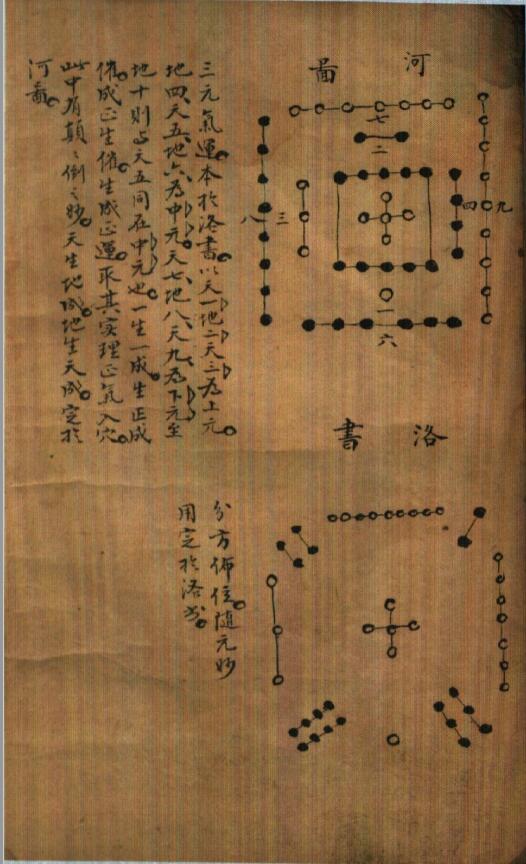 河圖
七
二
八
三
四
九
一
六
三元氣運。本於洛書。以天一地二天三為上元。
地四、天五、地六、為中元。天七、地八、天九為下元。至
地十則与天五同在中元也。一生一成。生正成
催。成正生催。生成正運。取其实理正氣入穴。
此中有顛顛倒倒之妙。天生地成。地生天成。定於
河圖。
洛書
分方佈位。隨元妙
用。定於洛书。